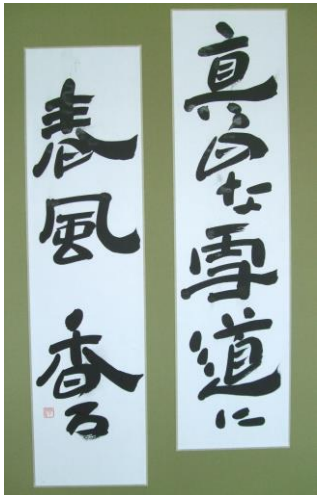 真白な雪道に
春風香る